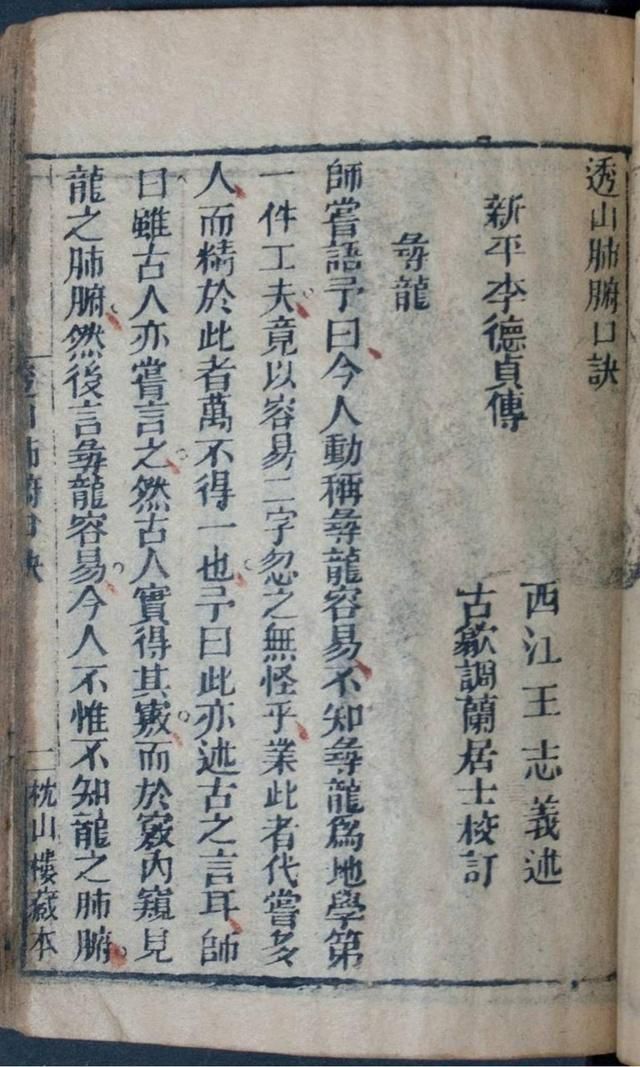 透山肺腑口訣
新平李德貞傳
西江王志義述
古歙調蘭居士校訂
尋龍
師嘗語予曰今人動稱尋龍容易不知尋龍爲地學第
一件工夫竟以容易二字忽之無怪乎業此者代嘗多
人而精於此者萬不得一也予曰此亦述古之言耳師
曰雖古人亦嘗言之然古人實得其竅而於竅內窺見
龍之肺腑然後言尋龍容易今人不惟不知龍之肺腑
透山肺腑口訣
一
枕山樓藏本